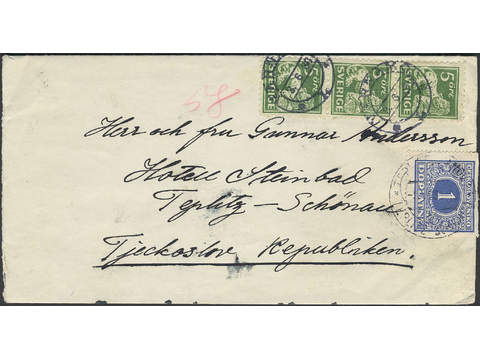 5 ÖRE SVERIGE
5 ÖRE SVERIGE
5 ÖRE SVERIGE
58
Herr och fru Gunnar Andersson
Hotell Steinbad
Teplitz-Schönau
Tjeckoslov. Republiken.
1
DOPLATNÉ